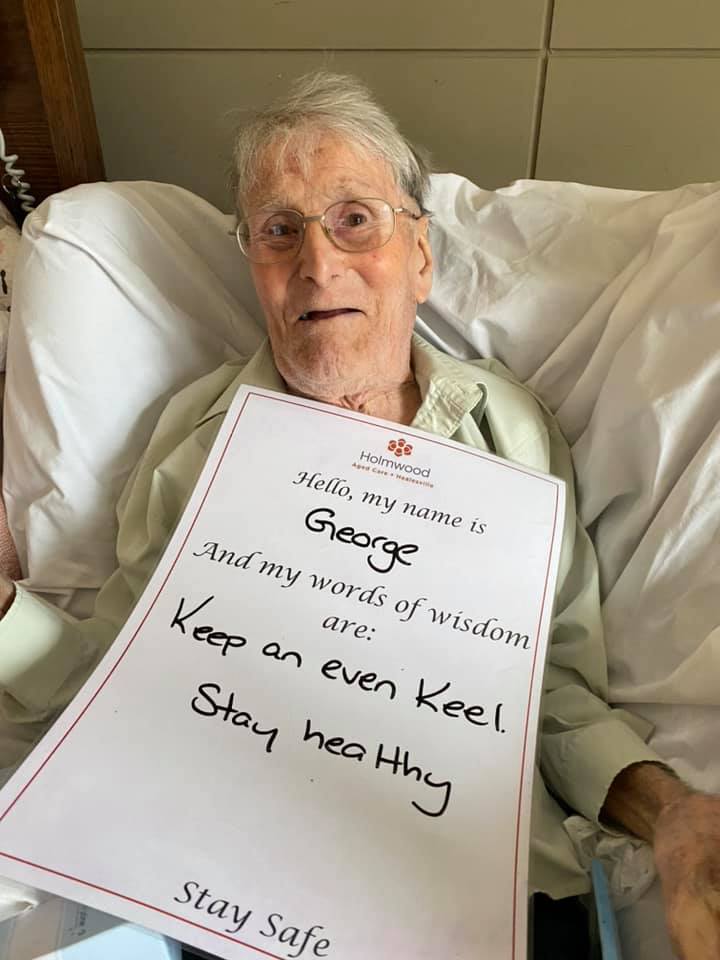 Holmwood
Aged Care • Healesville
Hello, my name is
George
And my words of wisdom
are:
Keep an even Keel.
Stay healthy
Stay Safe